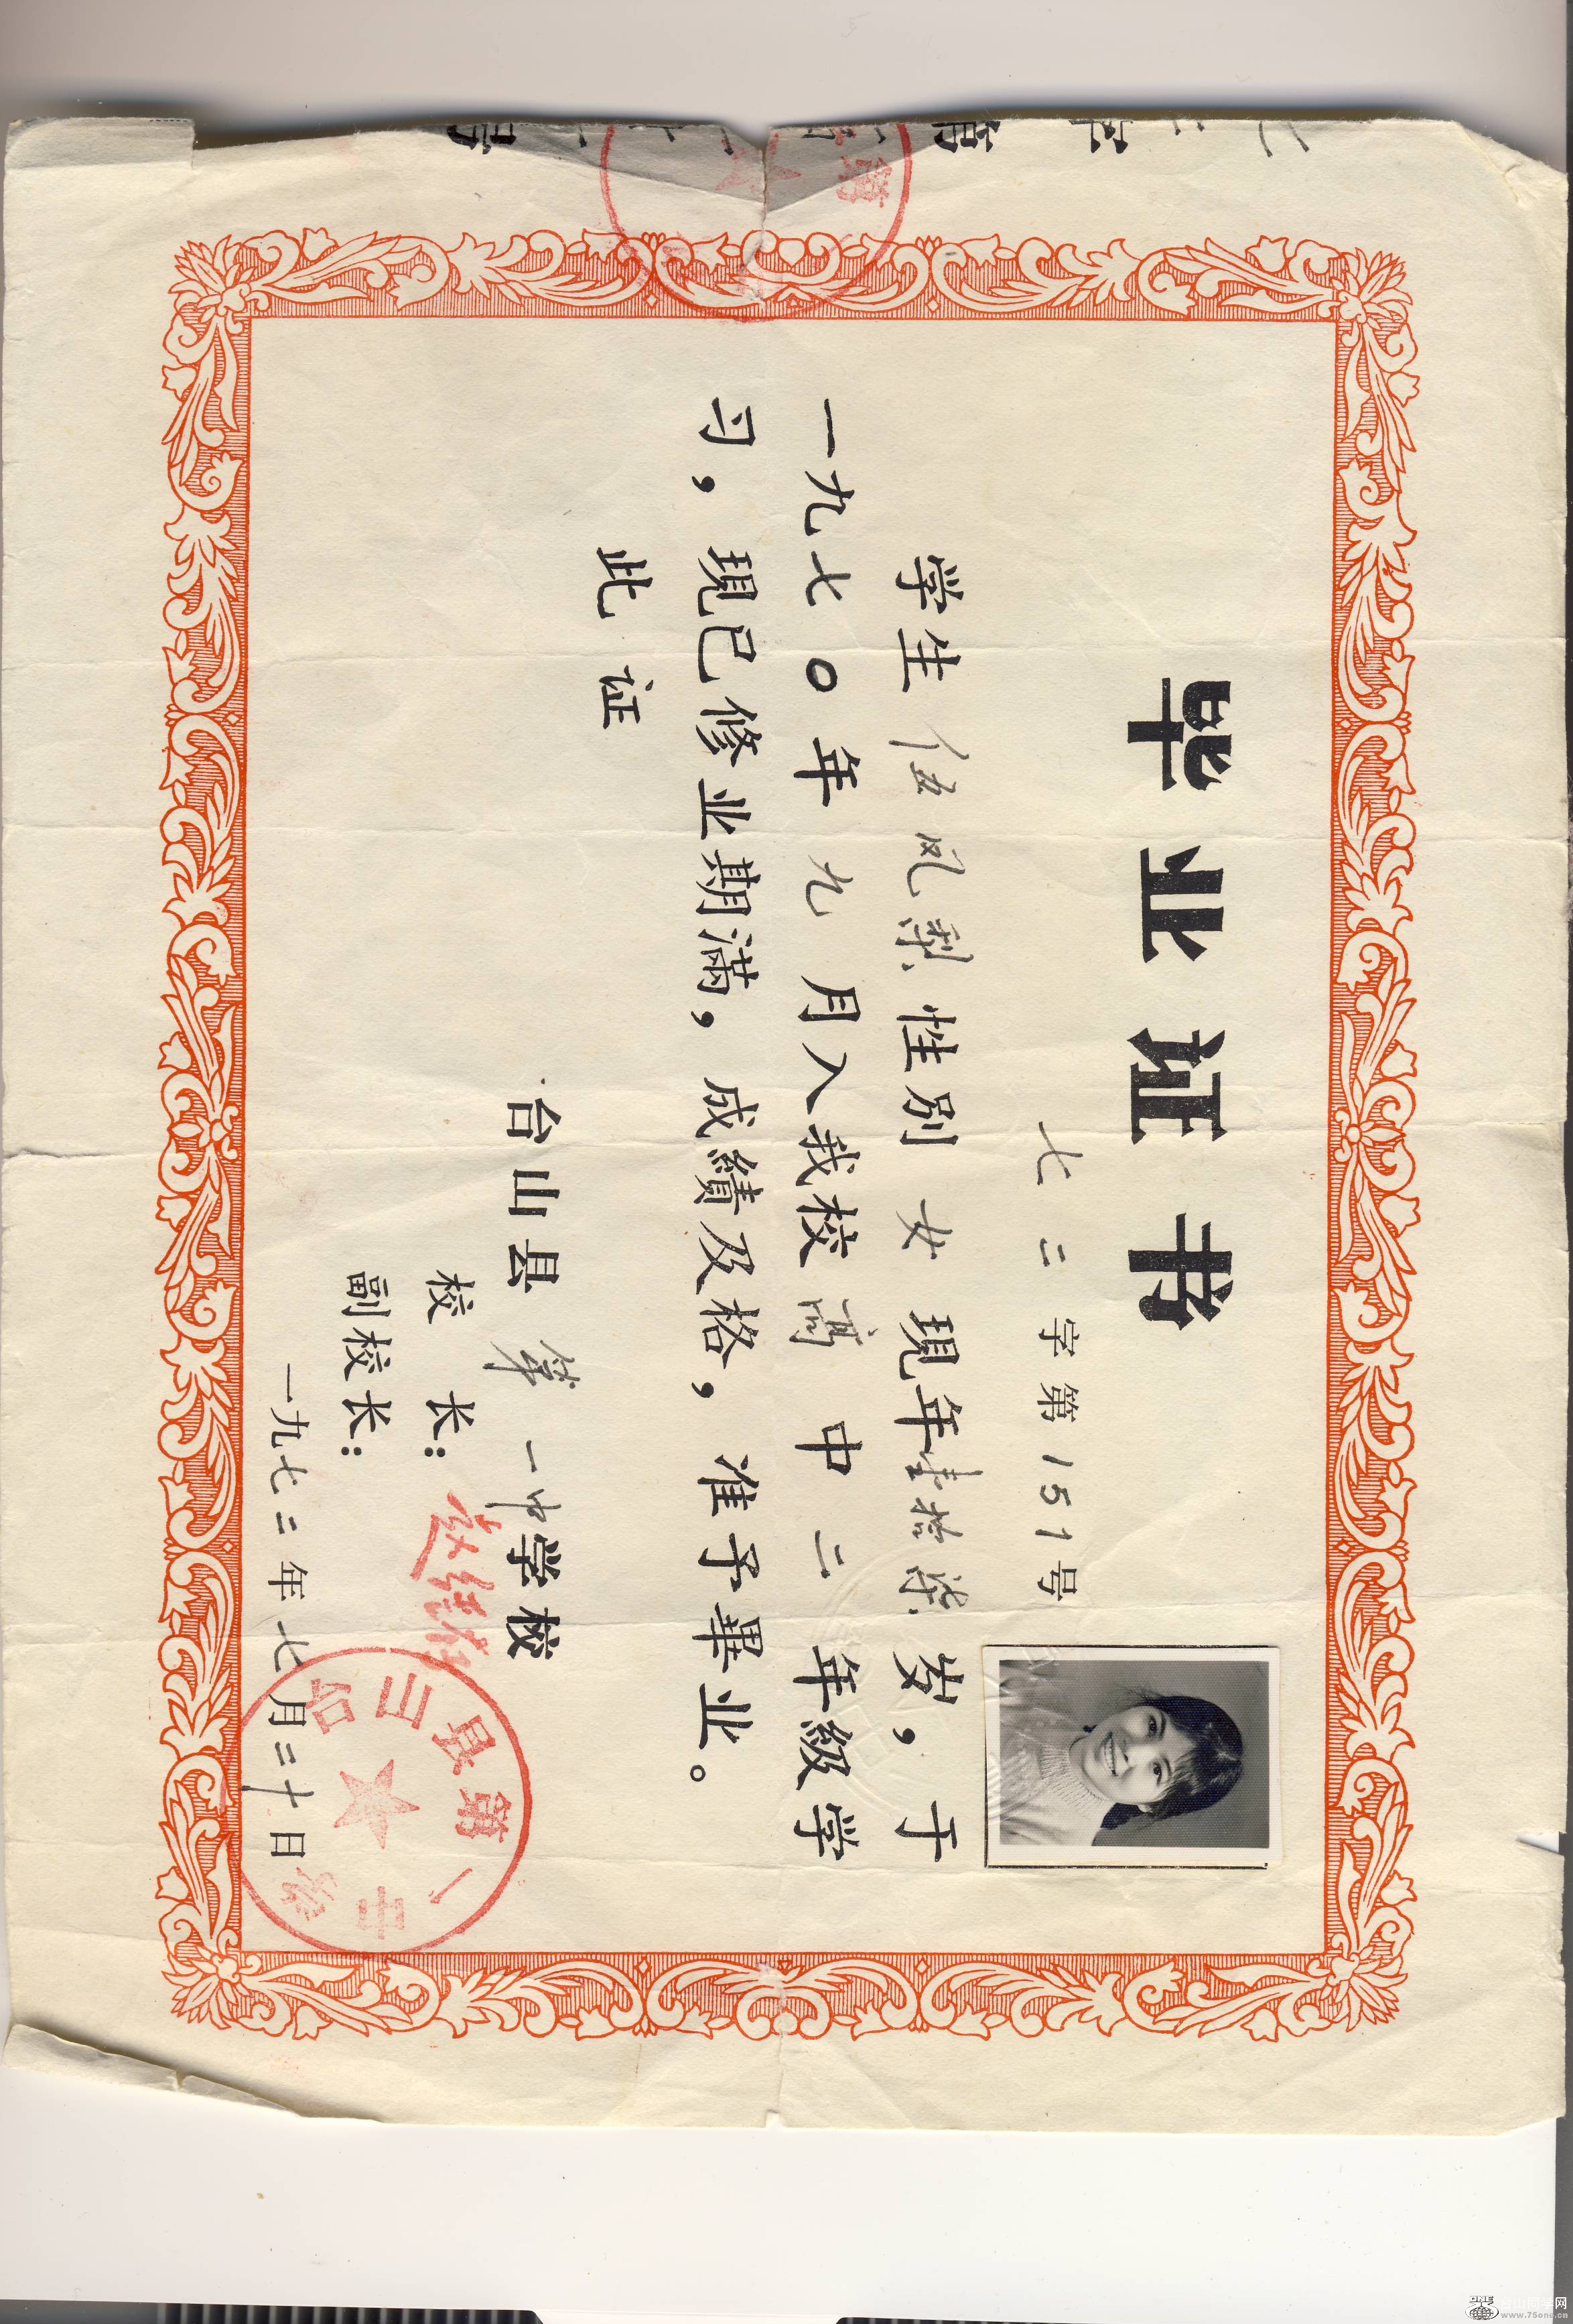 毕业证书
七二字第151号
学生伍凤梨性别女現年壹拾柒岁，于
一九七〇年九月入我校高中二年級学
习，現已修业期满，成績及格，准予畢业。
此证
台山县第一中学校
校长：
副校长：
一九七二年七月二十日
台山县第一中学
第
www.75one.cn